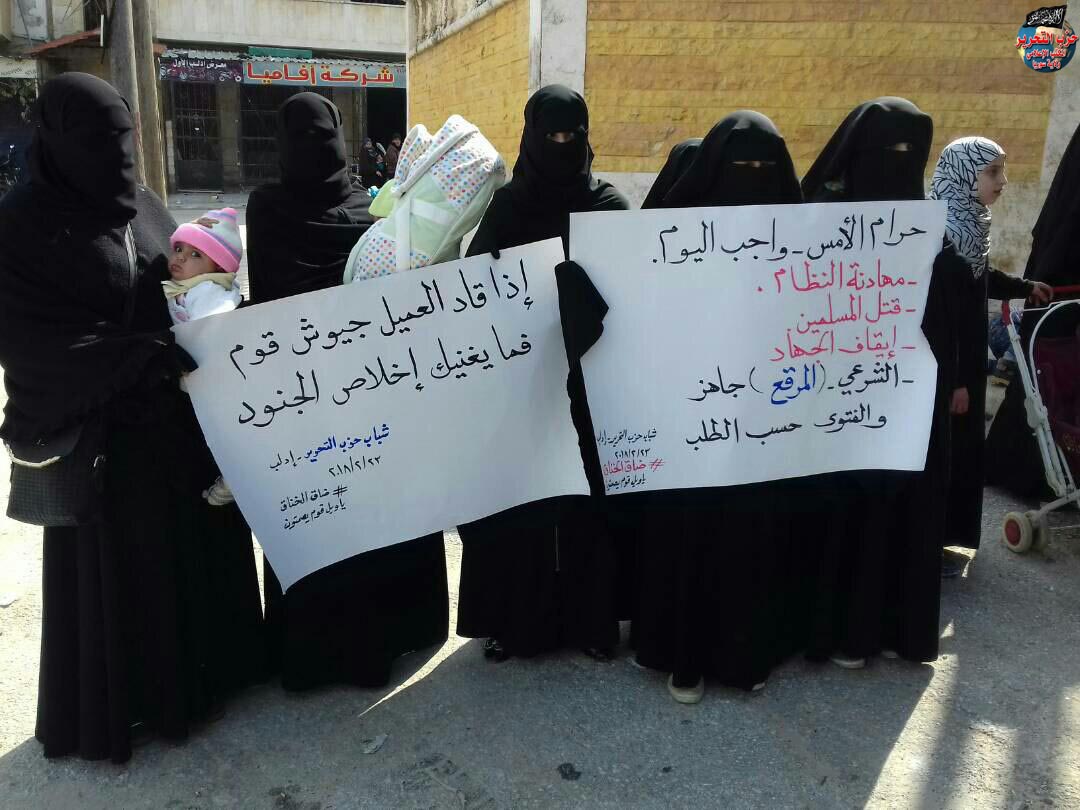 شركة إقاميا
معرض إدلب الأول
حزب التحرير
المكتب الإعلامي
ولاية سوريا
إذا قاد العميل جيوش قوم
فما يغنيك إخلاص الجنود
شباب حزب التحرير - إدلب
٢٠١٨/٢/٢٣
#ضاق الخناق
ياويل قوم يصمتون
حرام الأمس - واجب اليوم.
- مهادنة النظام.
- قتل المسلمين
- إيقاف الجهاد
- الشرعي - (المرقع) جاهز
والفتوى حسب الطلب
شباب حزب التحرير - إدلب
٢٠١٨/٢/٢٣
#ضاق الخناق
ياويل قوم يصمتون